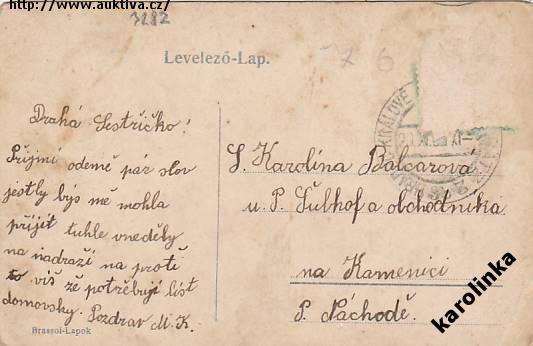 http://www.auktiva.cz/
3282
Levelező-Lap.
7 6
KRÁLOVÉ
Drahá Sestřičko!
Přijmi odemě pár slov
jestly býs mě mohla
přijít tuhle vneděly
na nadraží na protě
to víš že potřebuji líst
domovsky. Pozdrav M. K.
S. Karolína Balcarova
u. P. Šulhofa obchodníka
na Kamenici
P. Náchodě.
Brassoi-Lapok
karolinka